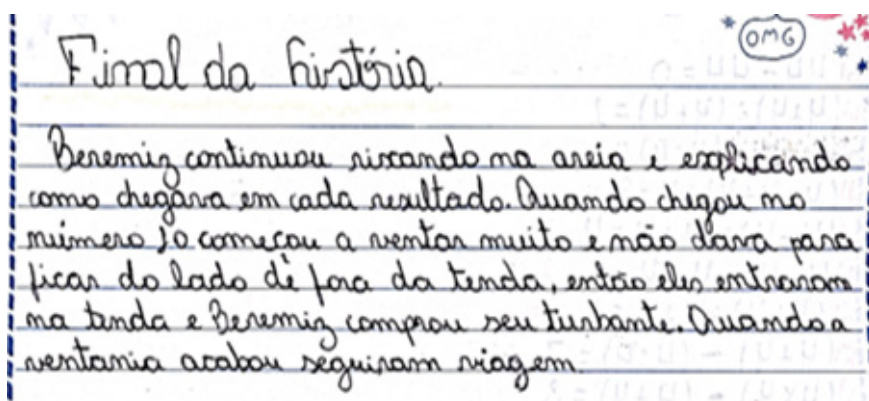 OMG
Final da história.
Beremiz continuou riscando na areia e explicando
como chegava em cada resultado. Quando chegou no
número 10 começou a ventar muito e não dava para
ficar do lado de fora da tenda, então eles entraram
na tenda e Beremiz comprou seu turbante. Quando a
ventania acabou seguiram viagem.